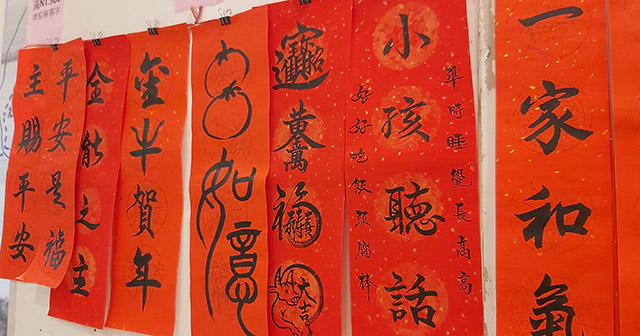 平安是福
主賜平安
金能之主
金牛賀年
如意
招財進寶
黃金萬兩
福
大吉
準時睡覺長高高
小孩聽話
好好吃飯頭腦棒
一家和氣